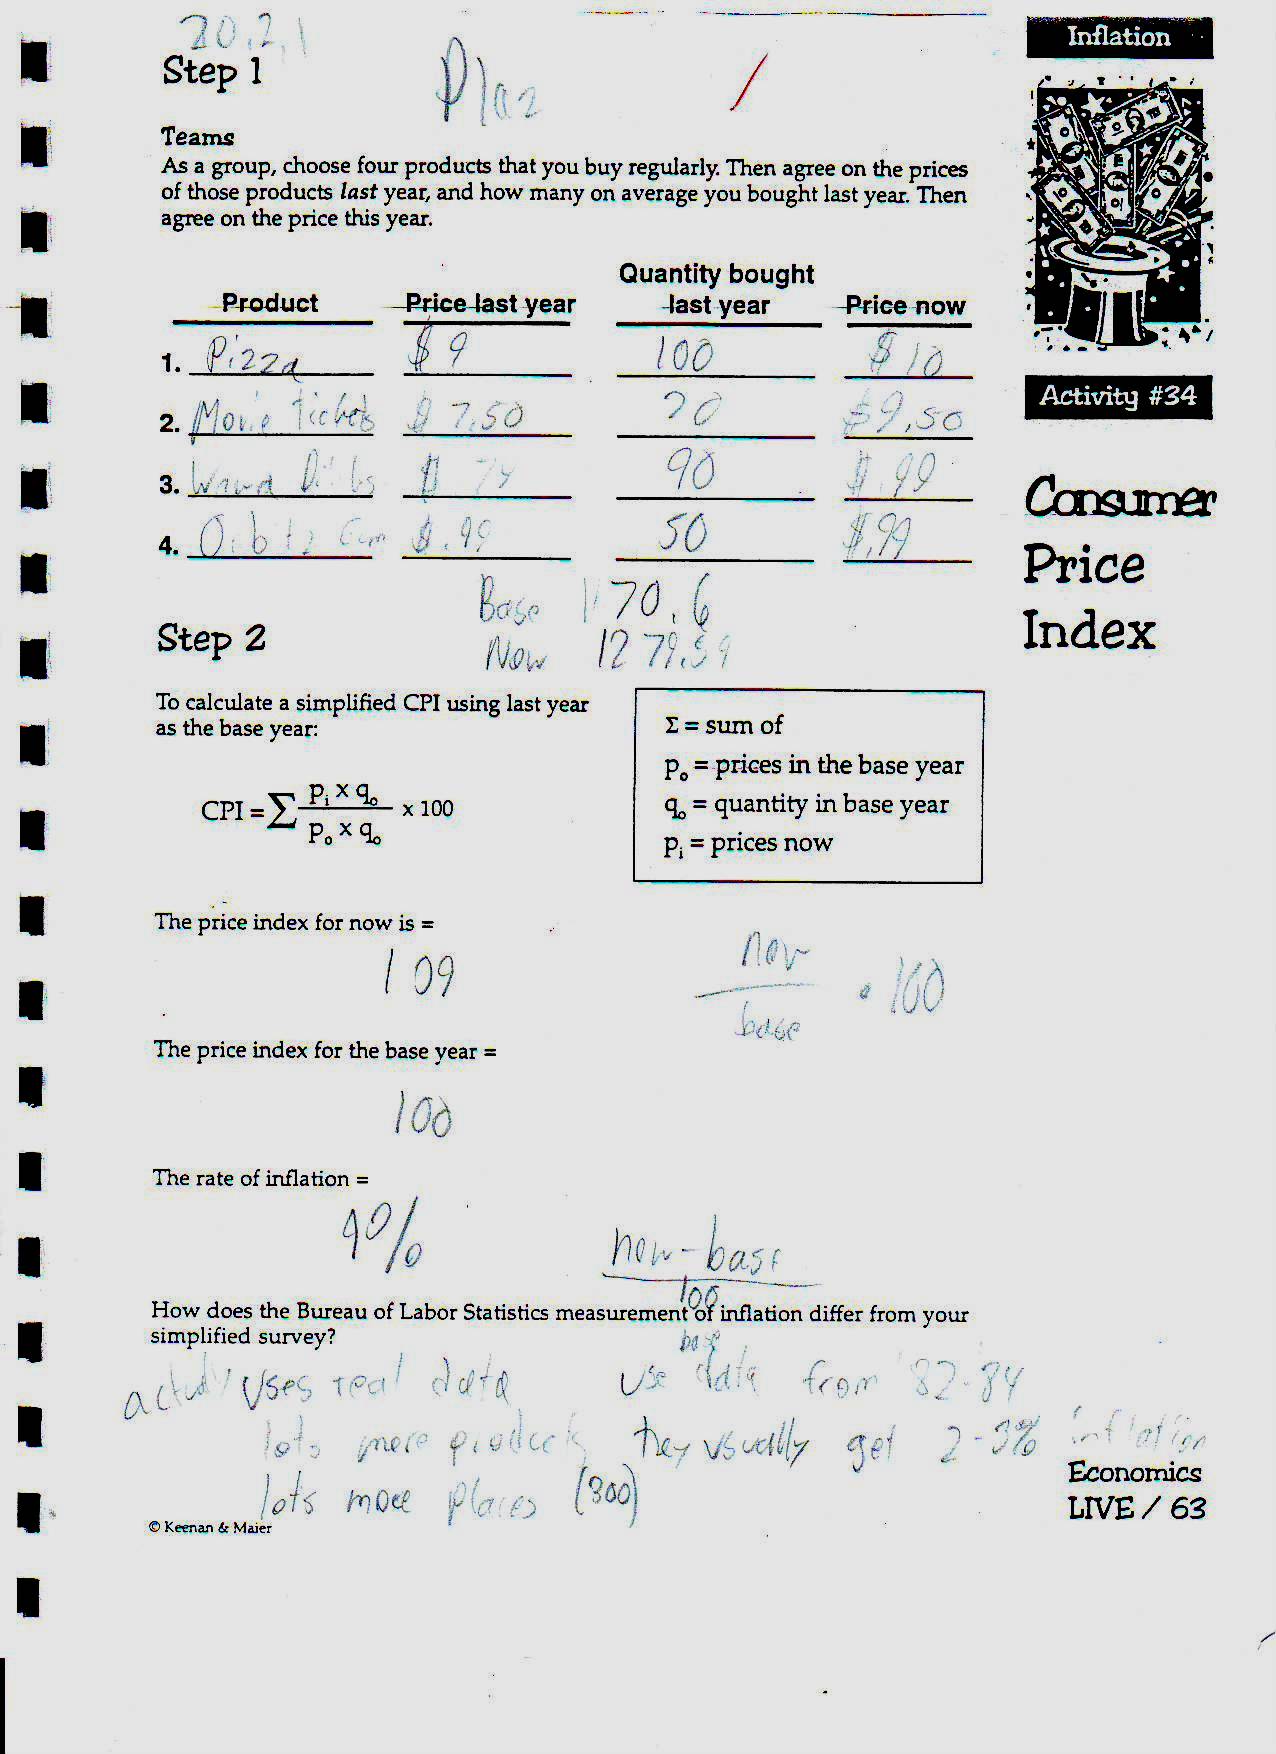 20.2.1
Inflation
Step 1
Teams
As a group, choose four products that you buy regularly. Then agree on the prices
of those products last year, and how many on average you bought last year. Then
agree on the price this year.
Quantity bought
Product Price last year last year Price now
1. Pizza $ 9 100 $ 10
2. Movie Tickets $ 7.50 20 $9.50
3. $ 90 $.99
4. Gum $.99 50 $.99
Activity #34
Consumer
Price
Index
Base 1170.6
Now 1279.59
Step 2
To calculate a simplified CPI using last year
as the base year:
CPI = Σ pᵢ x q₀ / p₀ x q₀ x 100
Σ = sum of
p₀ = prices in the base year
q₀ = quantity in base year
pᵢ = prices now
The price index for now is =
109
now / base • 100
The price index for the base year =
100
The rate of inflation =
9%
new - base
100
How does the Bureau of Labor Statistics measurement of inflation differ from your
simplified survey?
base
uses real data use data from 82-84
lots more products they usually get 2-3% inflation
lots more places (300)
Economics
LIVE / 63
© Keenan & Maier